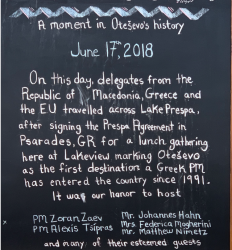 A moment in Oteševo's history
June 17, 2018
On this day, delegates from the
Republic of Macedonia, Greece and
the EU travelled across Lake Prespa,
after signing the Prespa Agreement in
Psarades, GR for a lunch gathering
here at Lakeview marking Oteševo
as the first destination a Greek PM
has entered the country since 1991.
It was our honor to host
PM Zoran Zaev Mr. Johannes Hahn
PM Alexis Tsipras Mrs. Federica Mogherini
Mr. Matthew Nimetz
and many of their esteemed guests